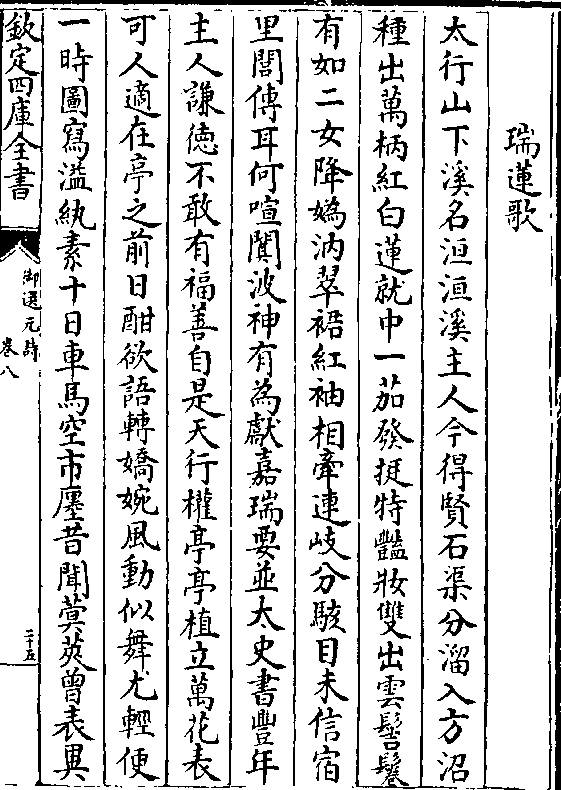 瑞蓮歌
太行山下溪名洹洹溪主人今得賢石渠分溜入方沼
種出萬柄紅白蓮就中一茄發挺特豔妝雙出雲髻鬈
有如二女降嬀汭翠裾紅袖相牽連岐分駭目未信宿
里閭傳耳何喧闐波神有為獻嘉瑞要並太史書豐年
主人謙徳不敢有福善自是天行權亭亭植立萬花表
可人適在亭之前日酣欲語轉嬌婉風動似舞尤輕便
一時圖寫溢紈素十日車馬空市廛昔聞蓂莢曾表異
欽定四庫全書
御選元詩
卷八
二十五